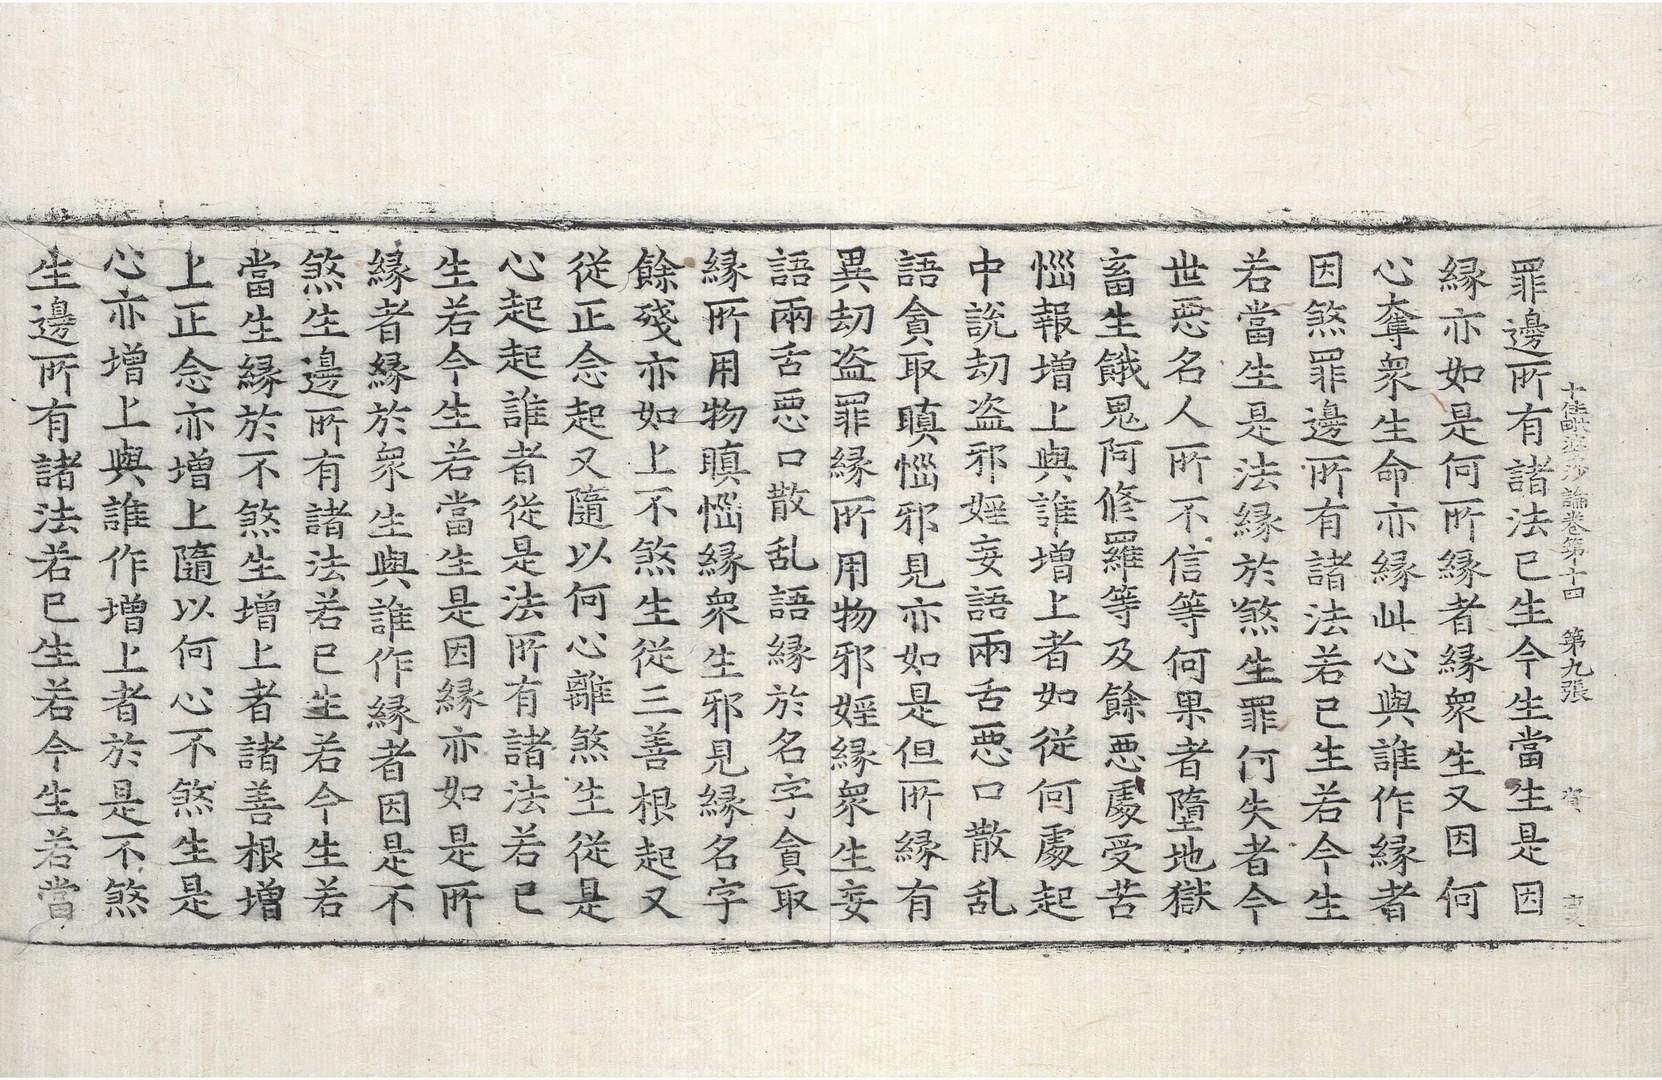 十住毗婆沙論卷第十四 第九張 資
罪邊所有諸法已生今生當生是因
縁亦如是何所縁者縁衆生又因何
心奪衆生命亦縁此心與誰作縁者
因煞罪邊所有諸法若已生若今生
若當生是法縁於煞生罪何失者今
世惡名人所不信等何果者墮地獄
畜生餓鬼阿修羅等及餘惡處受苦
惱報增上與誰增上者如從何處起
中說劫盗邪婬妄語兩舌惡口散乱
語貪取瞋惱邪見亦如是但所縁有
異劫盗罪縁所用物邪婬縁衆生妄
語兩舌惡口散乱語縁於名字貪取
縁所用物瞋惱縁衆生邪見縁名字
餘殘亦如上不煞生從三善根起又
從正念起又隨以何心離煞生從是
心起起誰者從是法所有諸法若已
生若今生若當生是因縁亦如是所
縁者縁於衆生與誰作縁者因是不
煞生邊所有諸法若已生若今生若
當生縁於不煞生增上者諸善根增
上正念亦增上隨以何心不煞生是
心亦增上與誰作增上者於是不煞
生邊所有諸法若已生若今生若當